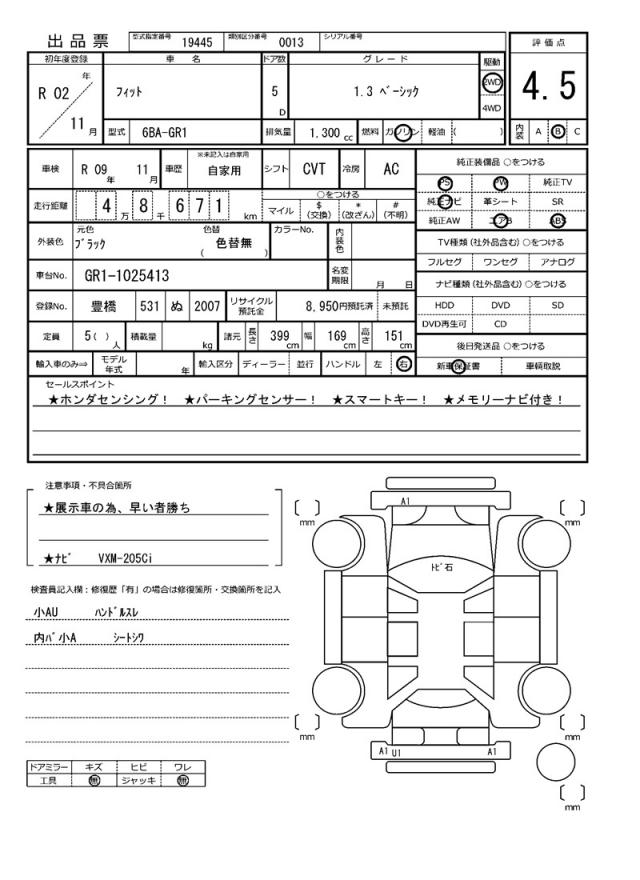 出品票 型式指定番号 19445 類別区分番号 0013 シリアル番号
評価点
4.5
内装 A B C
初年度登録 車名 ドア数 グレード 駆動
R 02 年 11 月 フィット 5 D 1.3 ベーシック 2WD 4WD
型式 6BA-GR1 排気量 1.300 cc 燃料 ガソリン 軽油 ( )
車検 R 09 年 11 月 車歴 ※未記入は自家用 自家用 シフト CVT 冷房 AC
走行距離 4 万 8 千 6 7 1 km
○をつける
マイル $ (交換) * (改ざん) # (不明)
外装色 元色 ブラック 色替 ( 色替無 ) カラーNo. 内装色
車台No. GR1-1025413 名変期限 月 日
登録No. 豊橋 531 ぬ 2007 リサイクル預託金 8,950円預託済 未預託
定員 5( ) 人 積載量 kg 諸元 長さ 399 cm 幅 169 cm 高さ 151 cm
輸入車のみ⇒ モデル年式 年 輸入区分 ディーラー 並行 ハンドル 左 右
純正装備品 ○をつける
PS PW 純正TV
純正ナビ 革シート SR
純正AW エアB ABS
TV種類 (社外品含む) ○をつける
フルセグ ワンセグ アナログ
ナビ種類 (社外品含む) ○をつける
HDD DVD SD
DVD再生可 CD
後日発送品 ○をつける
新車保証書 車輌取説
セールスポイント
★ホンダセンシング! ★パーキングセンサー! ★スマートキー! ★メモリーナビ付き!
注意事項・不具合箇所
★展示車の為、早い者勝ち
★ナビ VXM-205Ci
検査員記入欄：修復歴「有」の場合は修復箇所・交換箇所を記入
小AU ハンドルスレ
内バ小A シートシワ
ドアミラー キズ ヒビ ワレ
工具 無 ジャッキ 無
A1
mm mm
トビ石
mm mm
A1 U1 A1
mm